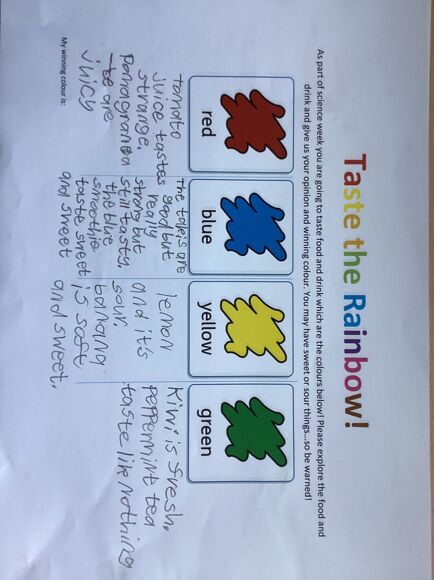 Taste the Rainbow!
As part of science week you are going to taste food and drink which are the colours below! Please explore the food and
drink and give us your opinion and winning colour. You may have sweet or sour things...so be warned!
red
blue
yellow
green
tomato
juice tastes
strange.
te are
juicy
The are
good but
really
strong but
still tasty.
the blue
smoothie
taste sweet
and sweet
lemon
and it's
sour.
banana
is soft
and sweet.
Kiwi is fresh.
peppermint tea
taste like nothing
My winning colour is: